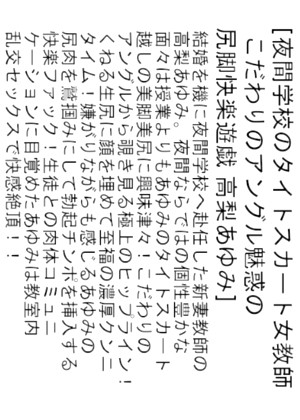 [夜間学校のタイトスカート女教師
こだわりのアングル魅惑の
尻脚快楽遊戯 高梨あゆみ]
結婚を機に夜間学校へ赴任した新妻教師の
高梨あゆみ。夜間ならではの個性豊かな
面々は授業よりもあゆみのタイトスカート
越しの美脚美尻に興味津々！こだわりの
アングルから覗き見る極上のヒップライン！
くねる生尻に顔を埋めて至福の濃厚クンニ
タイム！嫌がりながらも感じるあゆみの
尻肉を鷲掴みにして勃起チンポを挿入する
快楽ファック！生徒との肉体コミュニ
ケーションに目覚めたあゆみは教室内
乱交セックスで快感絶頂！！